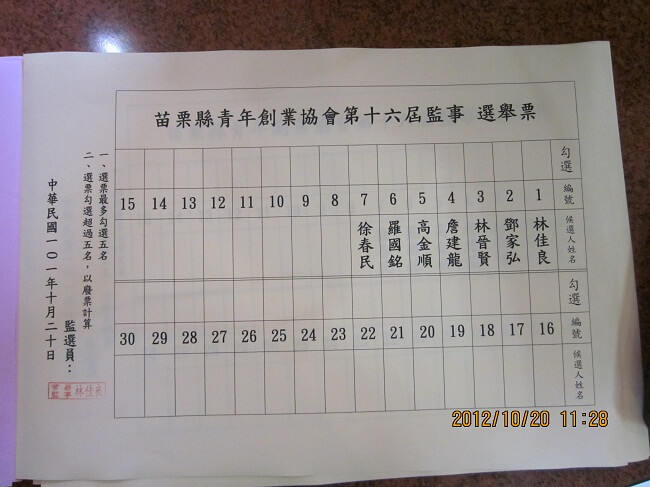 苗栗縣青年創業協會第十六屆監事 選舉票
勾選
編號 1 2 3 4 5 6 7 8 9 10 11 12 13 14 15
候選人姓名 林佳良 鄧家弘 林晉賢 詹建龍 高金順 羅國銘 徐春民
勾選
編號 16 17 18 19 20 21 22 23 24 25 26 27 28 29 30
候選人姓名
一、選票最多勾選五名
二、選票勾選超過五名，以廢票計算
中華民國一０一年十月二十日
監選員：
常務監事 林佳良
2012/10/20 11:28